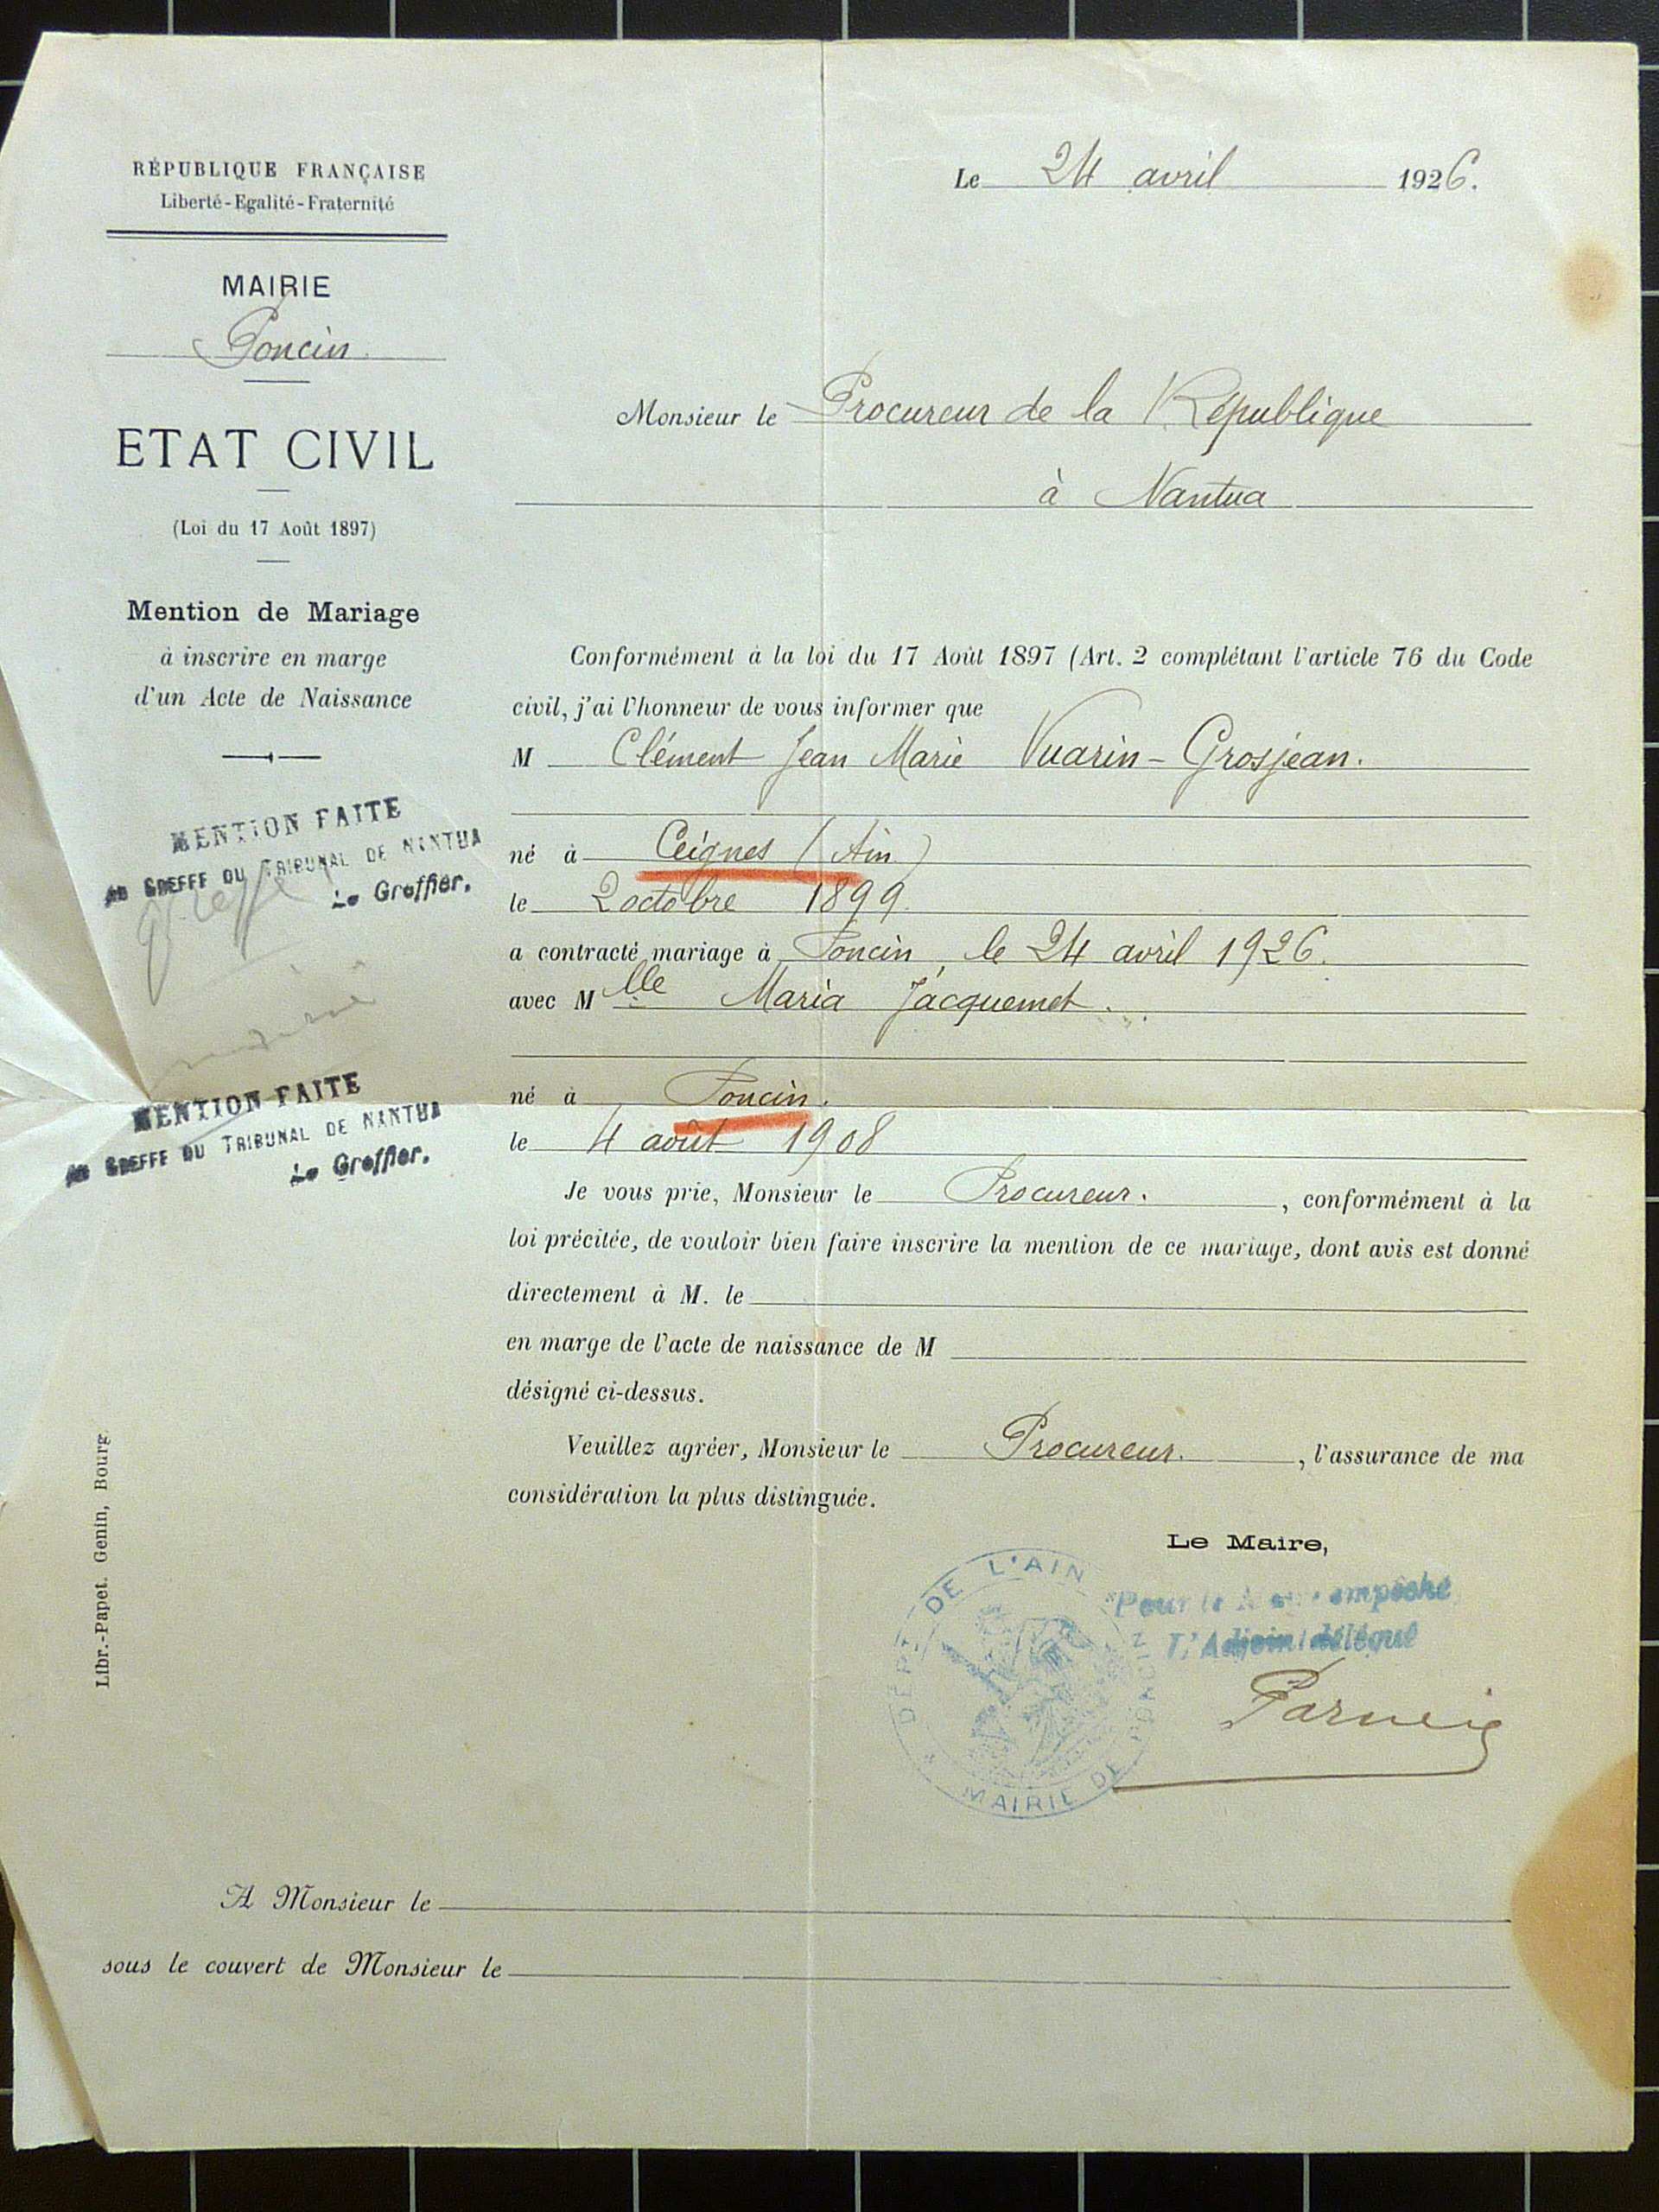 RÉPUBLIQUE FRANÇAISE
Liberté-Egalité-Fraternité
MAIRIE
Poncin
ETAT CIVIL
(Loi du 17 Août 1897)
Mention de Mariage
à inscrire en marge
d'un Acte de Naissance
MENTION FAITE
AU GREFFE DU TRIBUNAL DE NANTUA
Le Greffier.
greffe
MENTION FAITE
AU GREFFE DU TRIBUNAL DE NANTUA
Le Greffier.
Libr.-Papet. Genin, Bourg
Le 24 avril 1926.
Monsieur le Procureur de la République
à Nantua
Conformément à la loi du 17 Août 1897 (Art. 2 complétant l'article 76 du Code
civil, j'ai l'honneur de vous informer que
M Clément Jean Marie Vuarin-Grosjean.
né à Ceignes (Ain)
le 2 octobre 1899.
a contracté mariage à Poncin, le 24 avril 1926.
avec Mlle Maria Jacquemet.
né à Poncin.
le 4 août 1908
Je vous prie, Monsieur le Procureur. , conformément à la
loi précitée, de vouloir bien faire inscrire la mention de ce mariage, dont avis est donné
directement à M. le
en marge de l'acte de naissance de M
désigné ci-dessus.
Veuillez agréer, Monsieur le Procureur. , l'assurance de ma
considération la plus distinguée.
Le Maire,
Pour le Maire empêché
L'Adjoint délégué
DEPT DE L'AIN
MAIRIE DE PONCIN
A Monsieur le
sous le couvert de Monsieur le